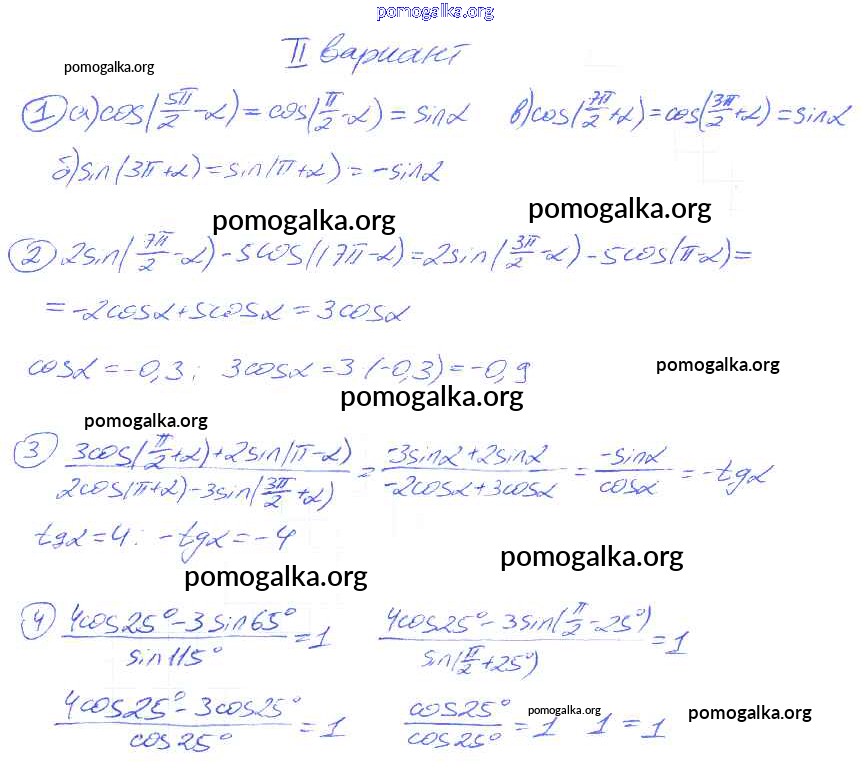 pomogalka.org
II вариант
pomogalka.org
① а) cos(5π/2 - α) = cos(π/2 - α) = sinα в) cos(7π/2 + α) = cos(3π/2 + α) = sinα
б) sin(3π + α) = sin(π + α) = -sinα
pomogalka.org pomogalka.org
② 2sin(7π/2 - α) - 5cos(17π - α) = 2sin(3π/2 - α) - 5cos(π - α) =
= -2cosα + 5cosα = 3cosα
cosα = -0,3; 3cosα = 3(-0,3) = -0,9
pomogalka.org
pomogalka.org
pomogalka.org
③ (3cos(π/2 + α) + 2sin(π - α))/(2cos(π + α) - 3sin(3π/2 + α)) = (-3sinα + 2sinα)/(-2cosα + 3cosα) = -sinα/cosα = -tgα
tgα = 4; -tgα = -4
pomogalka.org
pomogalka.org
④ (4cos25° - 3sin65°)/sin115° = 1 (4cos25° - 3sin(π/2 - 25°))/sin(π/2 + 25°) = 1
(4cos25° - 3cos25°)/cos25° = 1 cos25°/cos25° = 1 1 = 1
pomogalka.org pomogalka.org